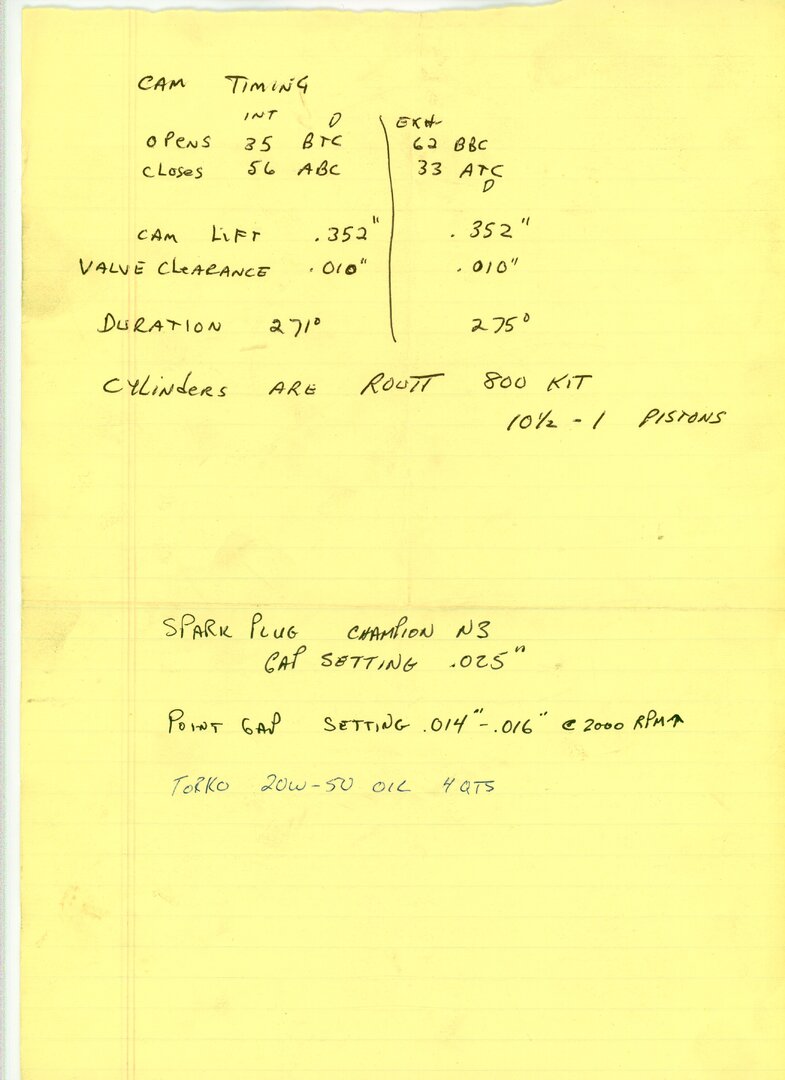 CAM TIMING
INT D EXH
OPENS 35 BTC 62 BBC
CLOSES 56 ABC 33 ATC
D
CAM LIFT .352" .352"
VALVE CLEARANCE .010" .010"
DURATION 271° 275°
CYLINDERS ARE ROUTT 800 KIT
10½ - 1 PISTONS
SPARK PLUG CHAMPION N3
GAP SETTING .025"
POINT GAP SETTING .014" - .016" @ 2000 RPM↑
TORKO 20W-50 OIL 4 QTS